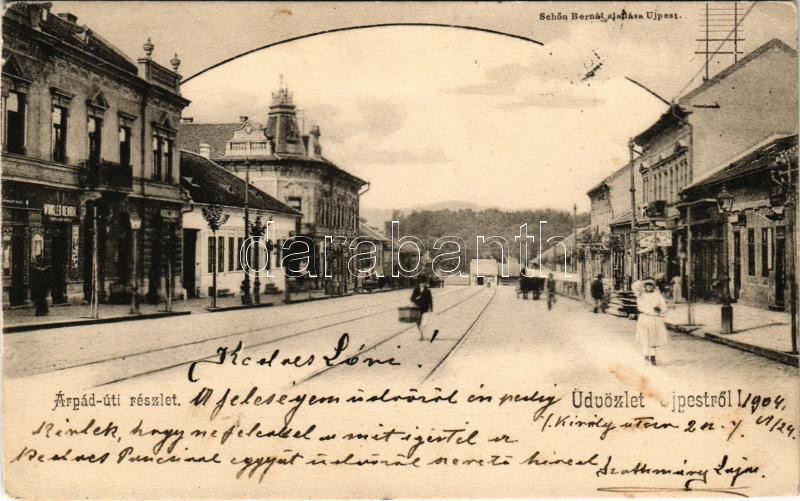 Schön Bernát kiadása Ujpest.
darabanth.com
Kedves Lóri!
Árpád-úti részlet.
Üdvözlet Ujpestről!
1904
A feleségem üdvözöl én pedig
(Király utca 2
kérlek, hogy ne feledd a mit igértél a
kedves Puncsinak együtt üdvözöl szerető hived Szathmáry Lajos